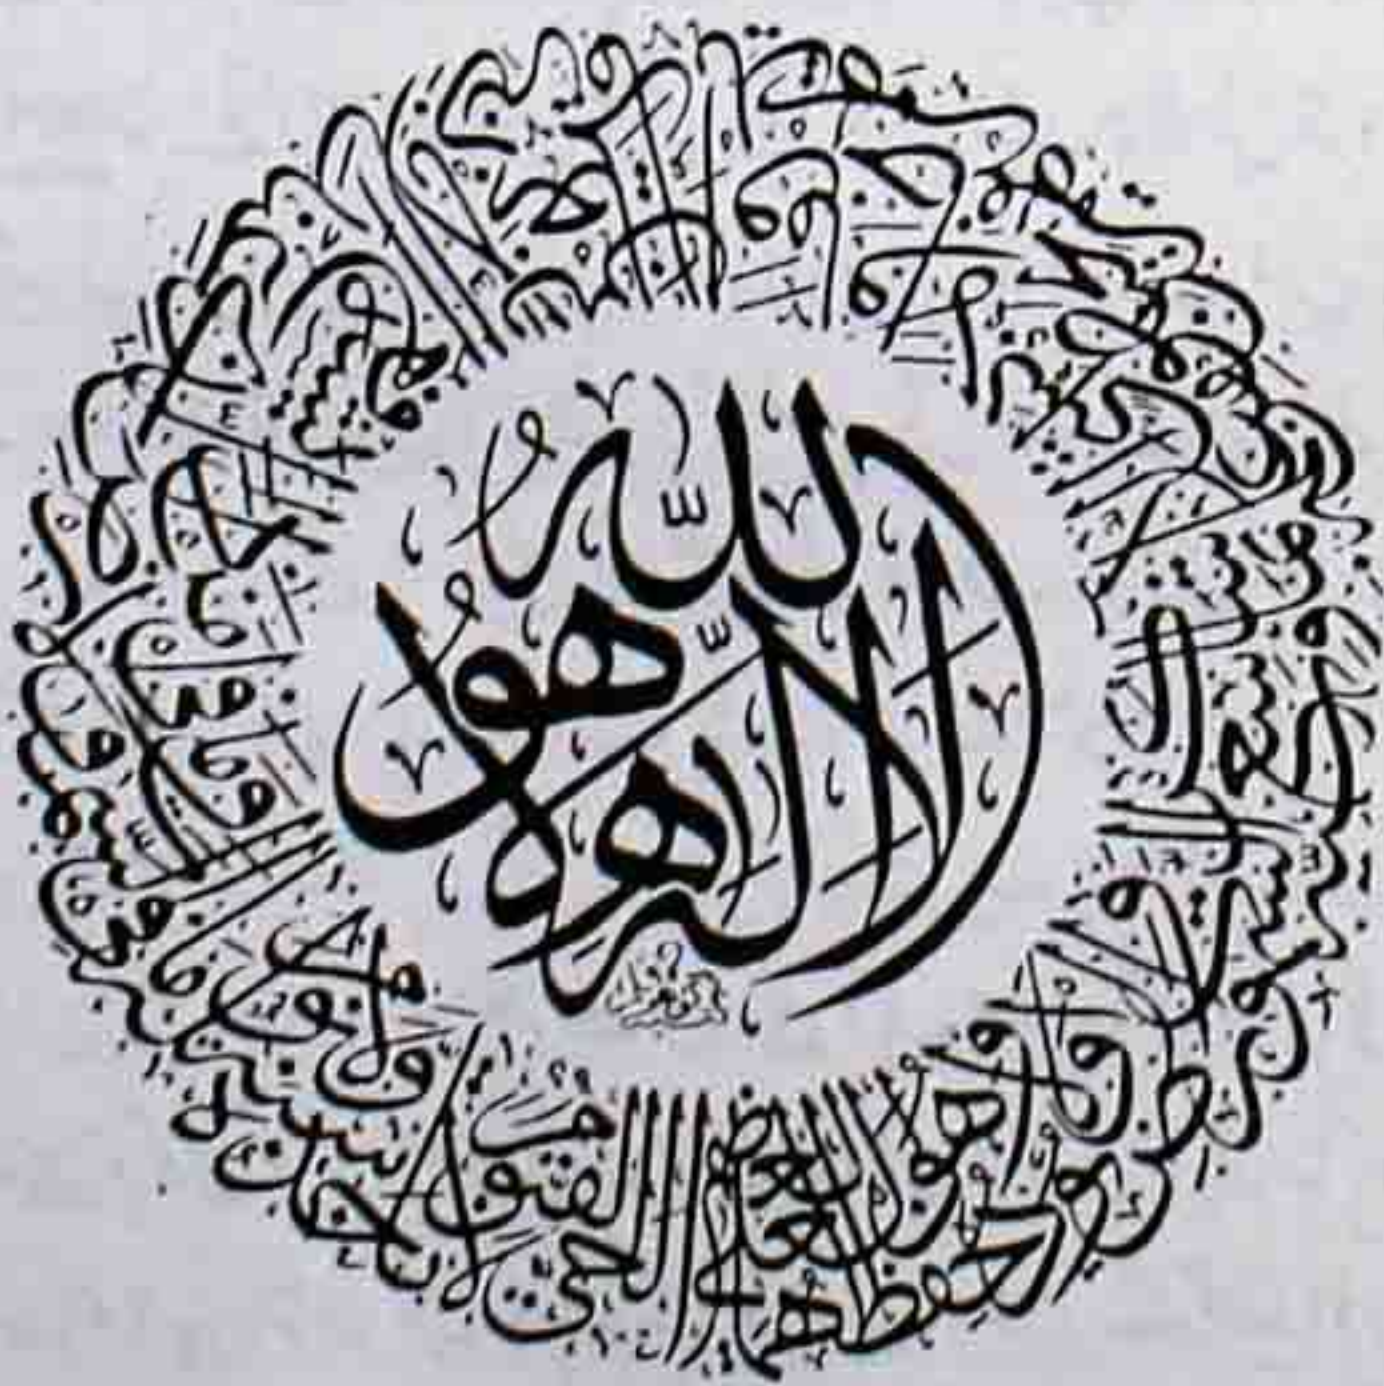 الله لا اله الا هو
الحي القيوم لا تأخذه سنة ولا نوم له ما في السموات وما في الارض من ذا الذي يشفع عنده الا باذنه يعلم ما بين ايديهم وما خلفهم ولا يحيطون بشيء من علمه الا بما شاء وسع كرسيه السموات والارض ولا يؤده حفظهما وهو العلي العظيم